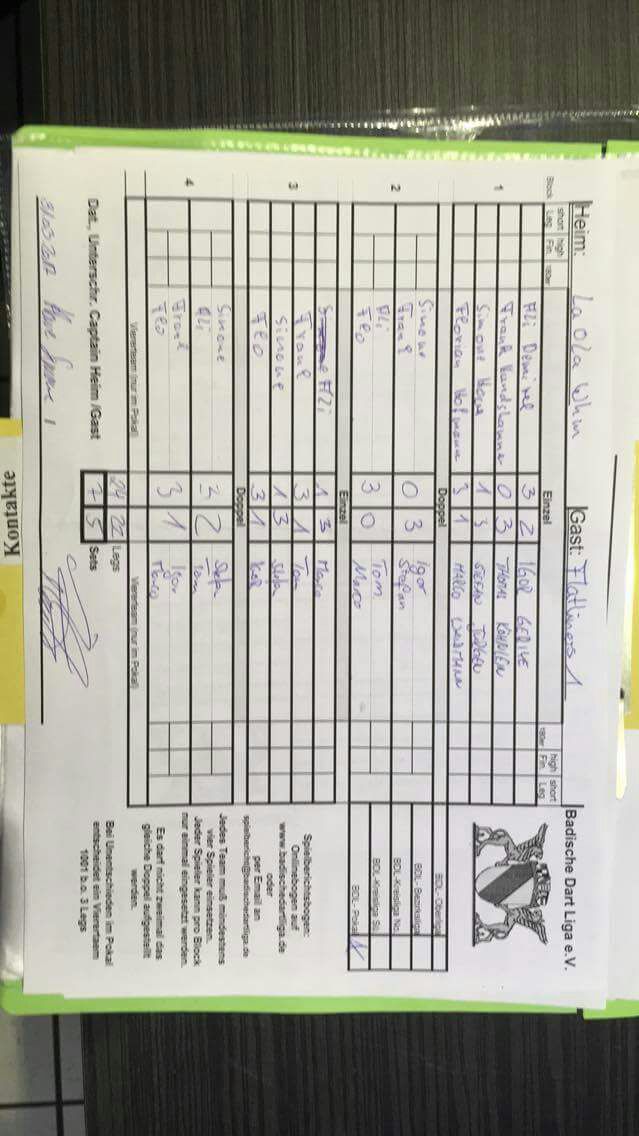 Heim: La Ola Whm Gast: Flatliners 1 Badische Dart Liga e.V.
Block short Leg high Fin. 180er Einzel 180er high Fin. short Leg
1 Ali Demirel 3 2 IGOR
Frank Landshammer 0 3 THOMAS
Simone 1 3 STEFAN
Florian Hofmann 3 1 MARCO
BDL - Oberliga
BDL - Bezirksliga
BDL-Kreisliga No.
BDL-Kreisliga Sü.
BDL - Pokal
Doppel
2 Simone 0 3 Igor
Frank Stefan
Ali 3 0 Tom
Flo Marco
Einzel
3 Ali 1 3 Marco
Frank 3 1 Tom
Simone 1 3 Stefan
Flo 3 1 Igor
Doppel
4 Simone 3 2 Stefan
Ali Tom
Frank 3 1 Igor
Flo Marco
Viererteam (nur im Pokal) Viererteam (nur im Pokal)
24 22 Legs
7 5 Sets
Dat., Unterschr. Captain Heim /Gast
31.03.2017
Spielberichtsbogen:
Onlinebogen auf
www.badischedartliga.de
oder
per Email an
spielbericht@badischedartliga.de
Jedes Team muß mindestens
vier Spieler einsetzen.
Jeder Spieler kann pro Block
nur einmal eingesetzt werden.
Es darf nicht zweimal das
gleiche Doppel aufgestellt
werden.
Bei Unentschieden im Pokal
entscheidet ein Viererteam
1001 b.o. 3 Legs
Kontakte